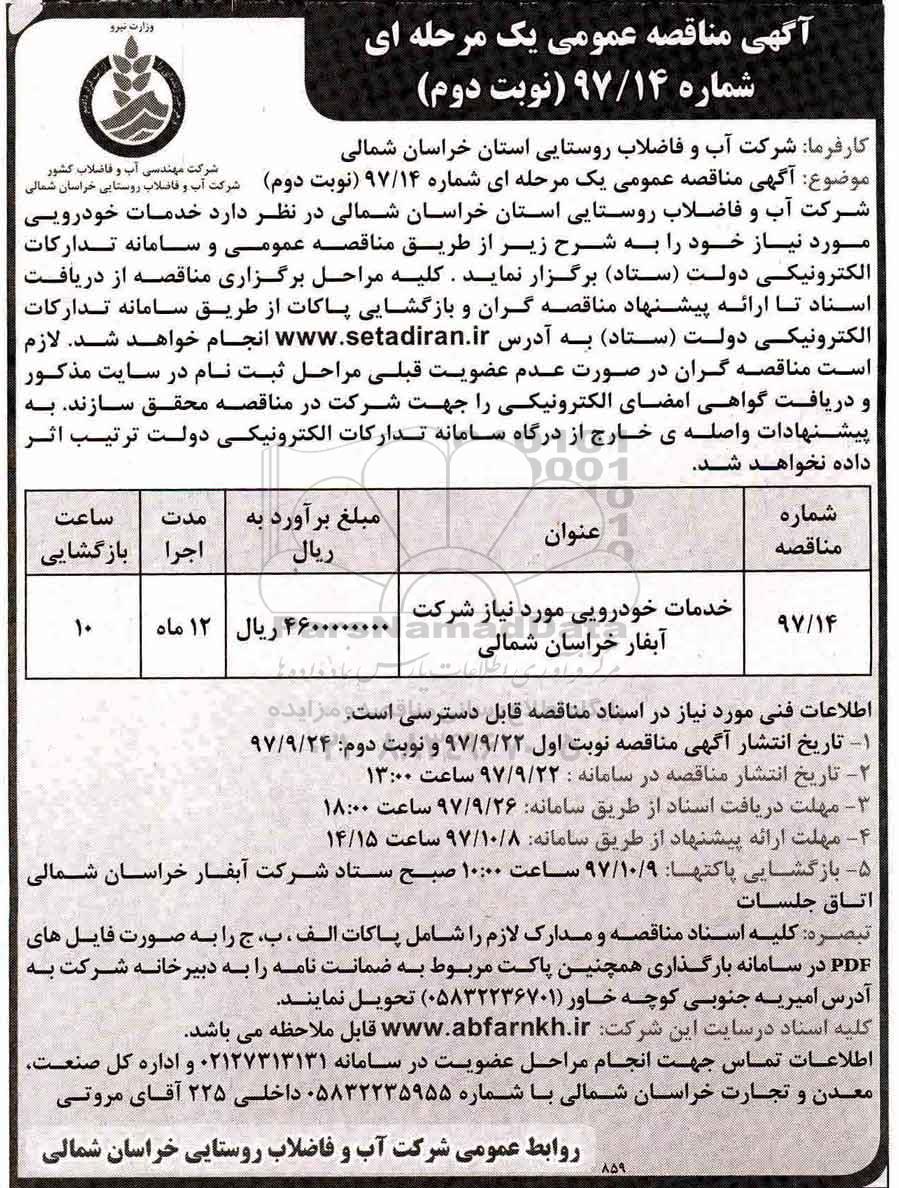 آگهی مناقصه عمومی یک مرحله ای
شماره ۹۷/۱۴ (نوبت دوم)
وزارت نیرو
شرکت مهندسی آب و فاضلاب کشور
شرکت آب و فاضلاب روستایی خراسان شمالی
کارفرما: شرکت آب و فاضلاب روستایی استان خراسان شمالی
موضوع: آگهی مناقصه عمومی یک مرحله ای شماره ۹۷/۱۴ (نوبت دوم)
شرکت آب و فاضلاب روستایی استان خراسان شمالی در نظر دارد خدمات خودرویی
مورد نیاز خود را به شرح زیر از طریق مناقصه عمومی و سامانه تدارکات
الکترونیکی دولت (ستاد) برگزار نماید . کلیه مراحل برگزاری مناقصه از دریافت
اسناد تا ارائه پیشنهاد مناقصه گران و بازگشایی پاکات از طریق سامانه تدارکات
الکترونیکی دولت (ستاد) به آدرس www.setadiran.ir انجام خواهد شد. لازم
است مناقصه گران در صورت عدم عضویت قبلی مراحل ثبت نام در سایت مذکور
و دریافت گواهی امضای الکترونیکی را جهت شرکت در مناقصه محقق سازند. به
پیشنهادات واصله ی خارج از درگاه سامانه تدارکات الکترونیکی دولت ترتیب اثر
داده نخواهد شد.
شماره مناقصه | عنوان | مبلغ برآورد به ریال | مدت اجرا | ساعت بازگشایی
۹۷/۱۴ | خدمات خودرویی مورد نیاز شرکت آبفار خراسان شمالی | ریال | ۱۲ ماه | ۱۰
ParsNamadData
اطلاعات فنی مورد نیاز در اسناد مناقصه قابل دسترسی است.
۱- تاریخ انتشار آگهی مناقصه نوبت اول ۹۷/۹/۲۲ و نوبت دوم: ۹۷/۹/۲۴
۲- تاریخ انتشار مناقصه در سامانه : ۹۷/۹/۲۲ ساعت ۱۳:۰۰
۳- مهلت دریافت اسناد از طریق سامانه: ۹۷/۹/۲۶ ساعت ۱۸:۰۰
۴- مهلت ارائه پیشنهاد از طریق سامانه: ۹۷/۱۰/۸ ساعت ۱۴/۱۵
۵- بازگشایی پاکتها: ۹۷/۱۰/۹ ساعت ۱۰:۰۰ صبح ستاد شرکت آبفار خراسان شمالی
اتاق جلسات
تبصره: کلیه اسناد مناقصه و مدارک لازم را شامل پاکات الف ، ب، ج را به صورت فایل های
PDF در سامانه بارگذاری همچنین پاکت مربوط به ضمانت نامه را به دبیرخانه شرکت به
آدرس امیریه جنوبی کوچه خاور (۰۵۸۳۲۲۳۶۷۰۱) تحویل نمایند.
کلیه اسناد درسایت این شرکت: www.abfarnkh.ir قابل ملاحظه می باشد.
اطلاعات تماس جهت انجام مراحل عضویت در سامانه ۰۲۱۲۷۳۱۳۱۳۱ و اداره کل صنعت،
معدن و تجارت خراسان شمالی با شماره ۰۵۸۳۲۲۳۵۹۵۵ داخلی ۲۲۵ آقای مروتی
روابط عمومی شرکت آب و فاضلاب روستایی خراسان شمالی
۸۵۹